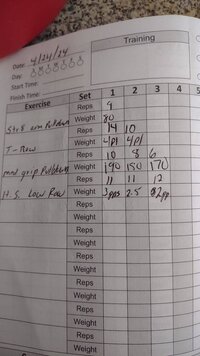 Training
Date: 4/24/24
Day:
Start Time:
Finish Time:
Exercise Set 1 2 3 4 5
Reps 9
Weight 80
Str8 arm Reps 14 10
Weight 4pl 4pl
T-Row Reps 10 8 6
Weight 190 180 170
grip Reps 11 11 12
Weight 2.5
H.S. Low Row Reps
Weight
Reps
Weight
Reps
Weight
Reps
Weight
Reps
Weight
Reps
Weight